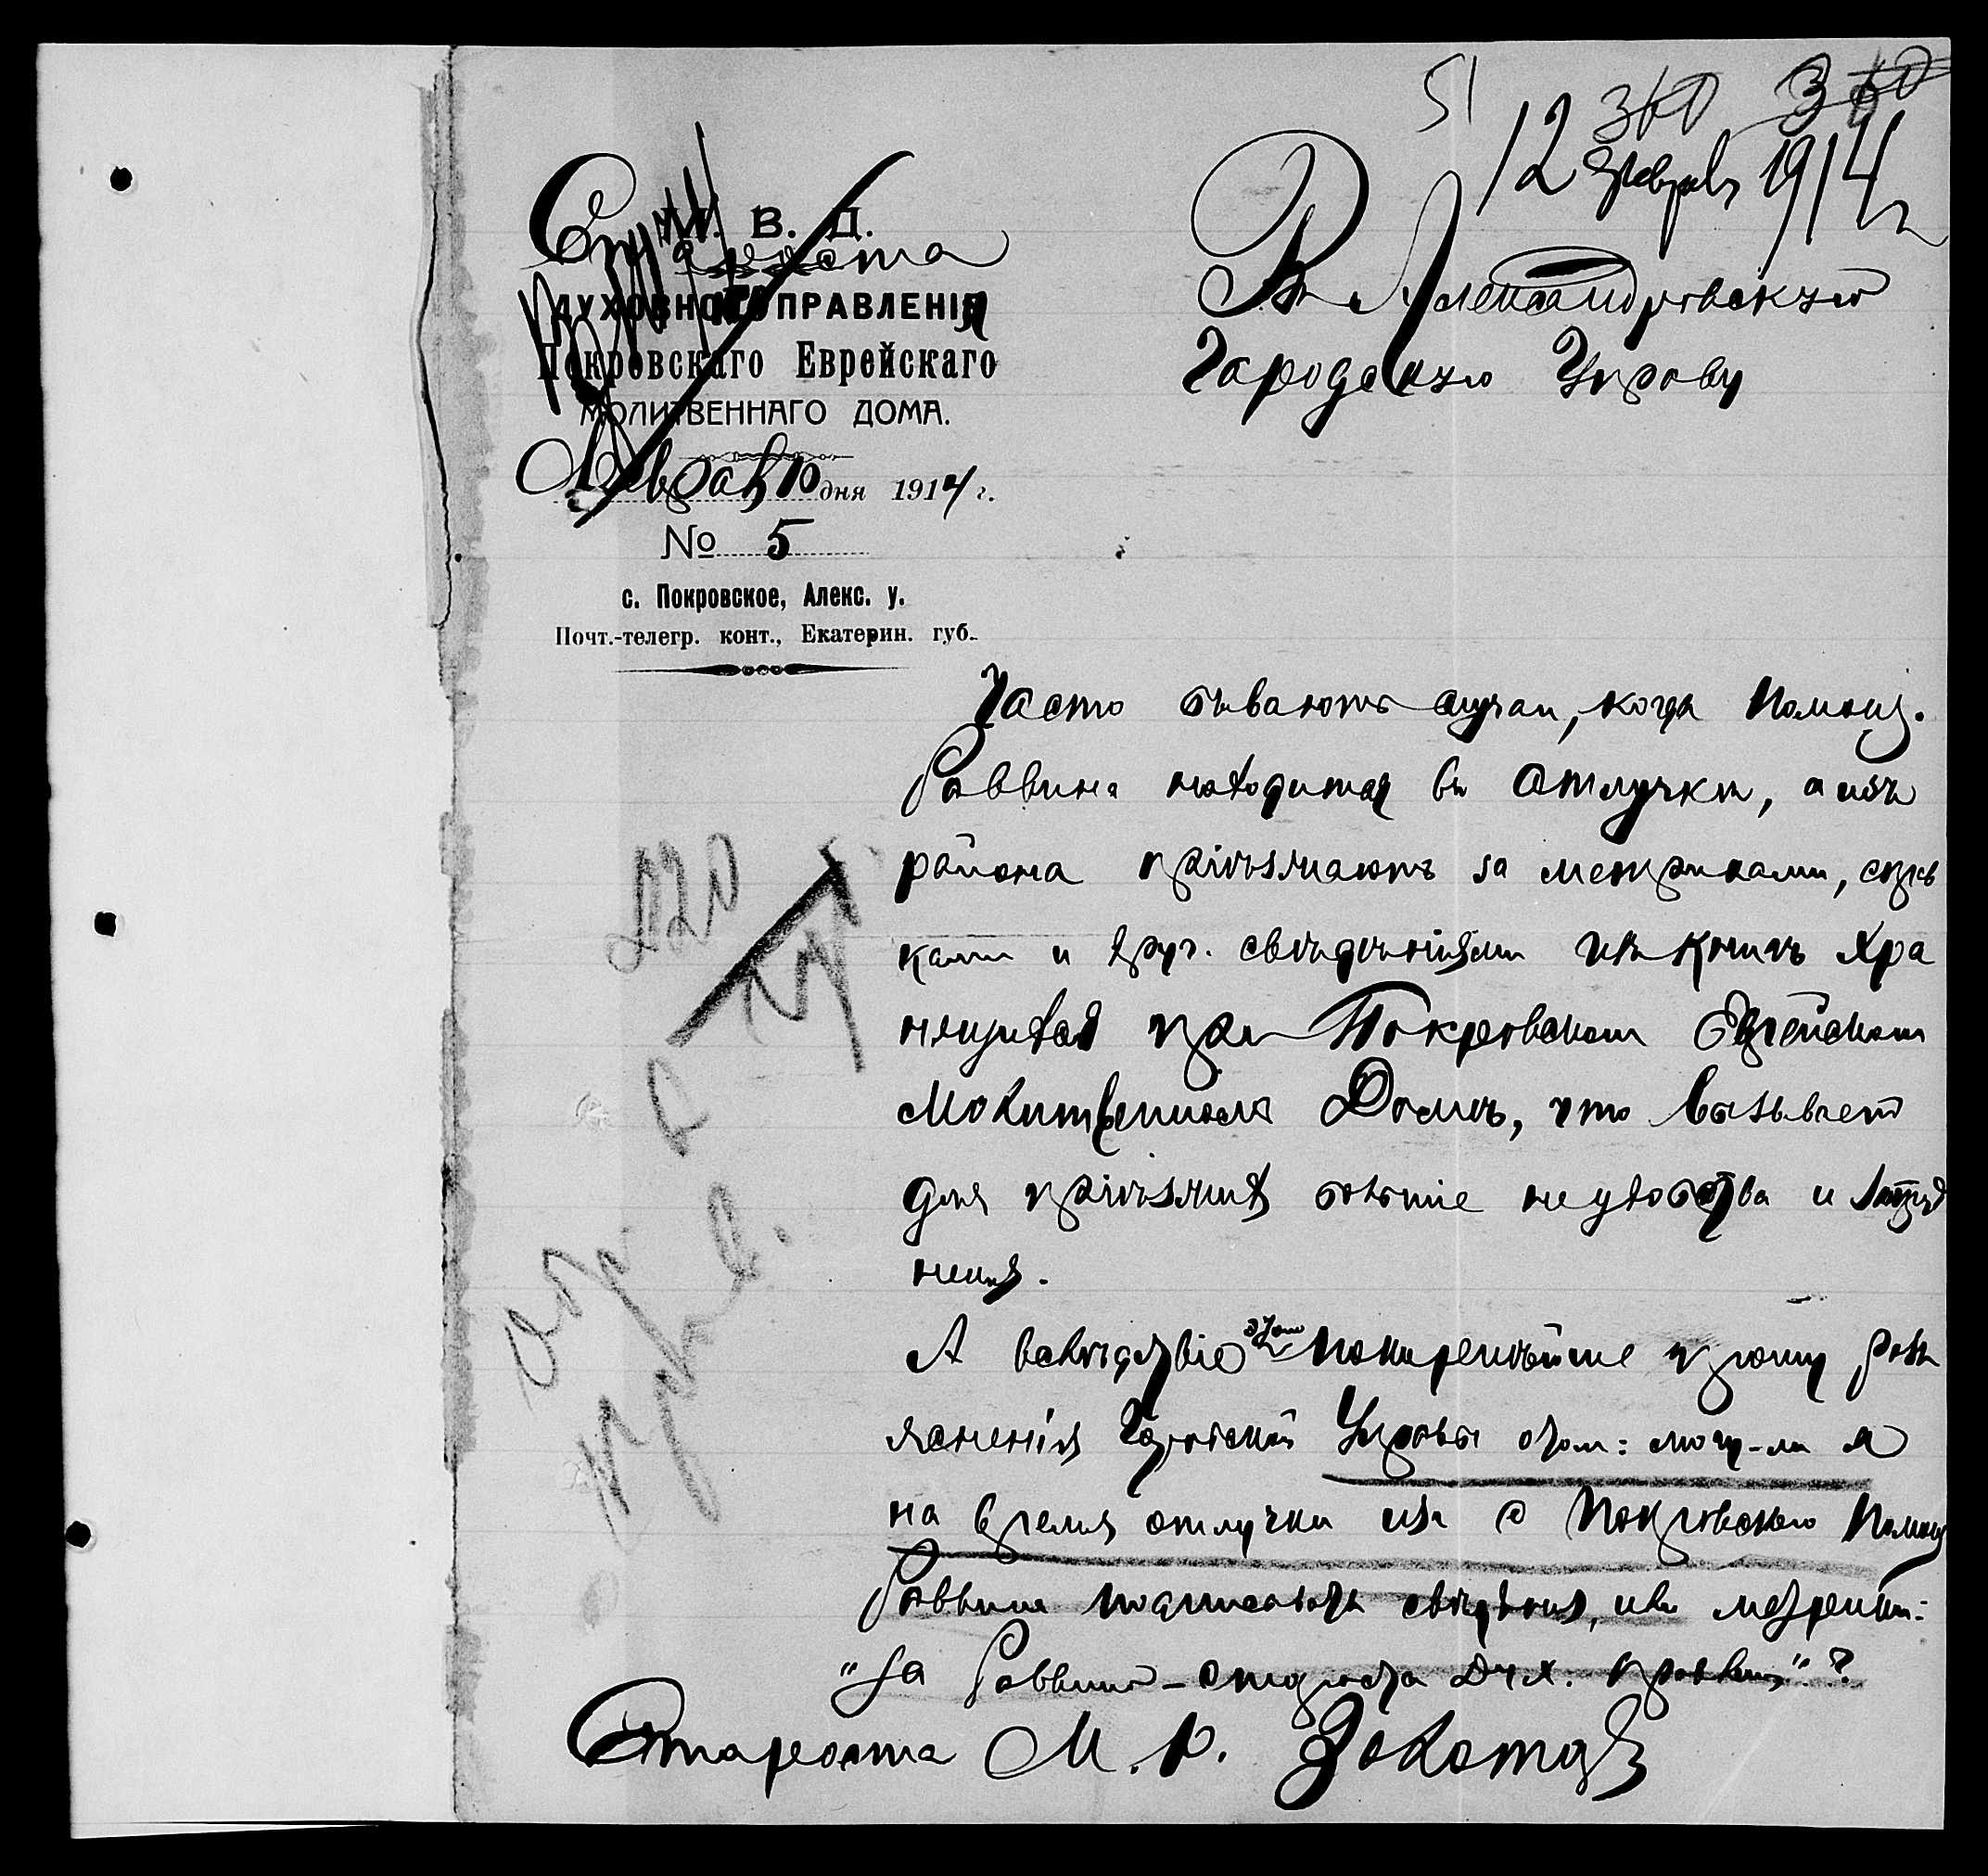 51
360 360
12 февраля 1914 г
М. В. Д.
Староста
ДУХОВНОГО ПРАВЛЕНІЯ
Покровскаго Еврейскаго
МОЛИТВЕННАГО ДОМА.
Феврал 10 дня 1914 г.
№ 5
с. Покровское, Алекс. у.
Почт.-телегр. конт., Екатерин. губ.
Въ Александровскую
Городскую Управу
Часто бываютъ случаи, когда Помощ.
Раввина находится въ отлучки, а изъ
района пріѣзжаютъ за метриками, справ
ками и друг. свѣдѣніями изъ книгъ хра
нящихся при Покровскомъ Еврейскомъ
Молитвенномъ Домѣ, что вызываетъ
для пріѣзжихъ большіе неудобства и затруд
ненія.
А вслѣдствіе этого покорнѣйше прошу разъ
ясненія Городской Управы о томъ: могу-ли я
на время отлучки изъ с Покровскаго Помощ
Раввина подписывать свѣдѣнія, изъ метрикъ:
"За Раввина - староста Дух. правленія"?
Староста М. Р. Золотарь